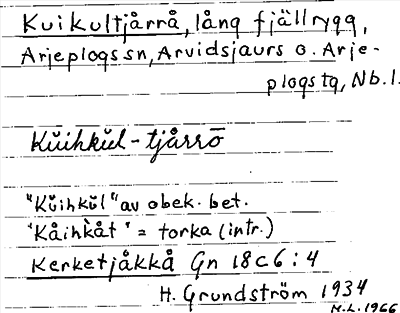 Kuikultjårrå, lång fjällrygg,
Arjeplogs sn, Arvidsjaurs o. Arje-
plogs tg, Nb.l.
Kŭihkŭl-tjårrō
"Kŭihkŭl" av obek. bet.
"Kåihk̀åt" = torka (intr.)
Kerketjåkkå Gn 18 C 6 : 4
H. Grundström 1934
H.L. 1966